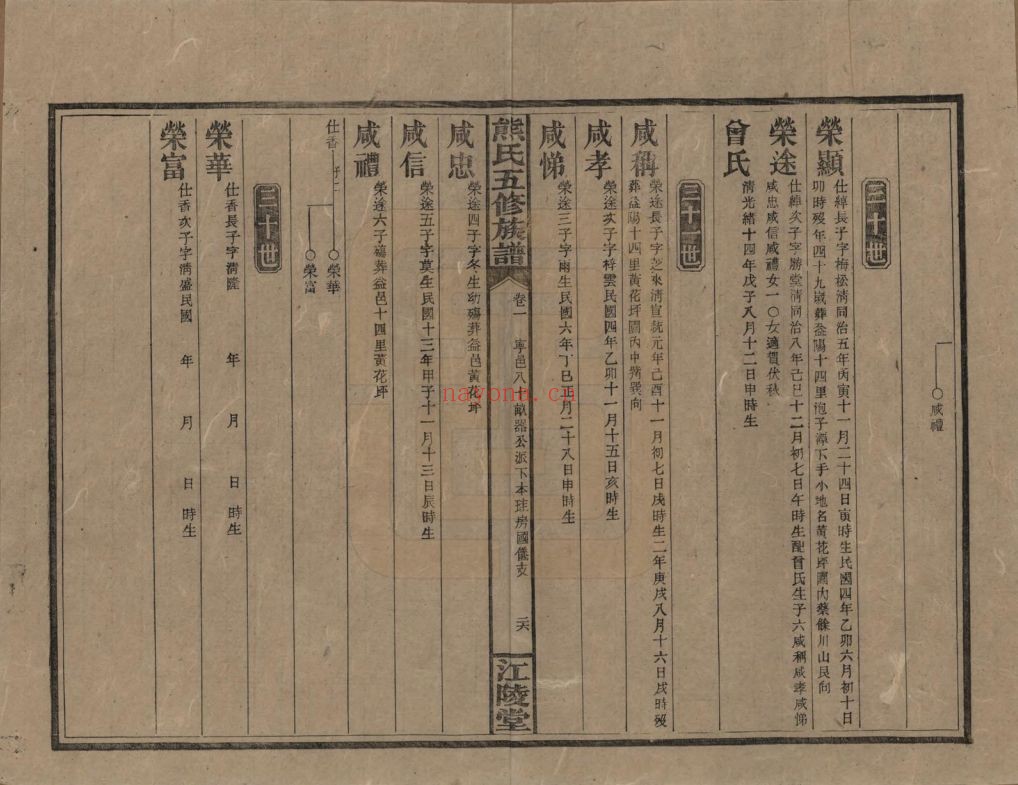 咸禮
三十世
榮顯
仕綽長子字梅松清同治五年丙寅十一月二十四日寅時生民國四年乙卯六月初十日
卯時歿年四十九歲葬益陽十四里泡子潭下手小地名黃花坪園內藥餘川山艮向
榮途
仕綽次子字勝堂清同治八年己巳十二月初七日午時生配曾氏生子六咸稱咸孝咸悌
咸忠咸信咸禮女一〇女適賀伏秋
曾氏
清光緒十四年戊子八月十二日申時生
三十一世
咸稱
榮途長子字芝來清宣統元年己酉十一月初七日戌時生二年庚戌八月十六日戌時歿
葬益陽十四里黃花坪園內申巽向
咸孝
榮途次子字梓雲民國四年乙卯十一月十五日亥時生
咸悌
榮途三子字雨生民國六年丁巳正月二十八日申時生
熊氏五修族譜
卷一
寧邑八十畝器公派下本珪房國儀支
二六
江陵堂
咸忠
榮途四子字冬生幼殤葬益邑黃花坪
咸信
榮途五子字莫生民國十三年甲子十一月十三日辰時生
咸禮
榮途六子殤葬益邑十四里黃花坪
仕香 子二
榮華
榮富
三十世
榮華
仕香長子字滿隆 年 月 日 時生
榮富
仕香次子字滿盛民國 年 月 日 時生
nayona.cn